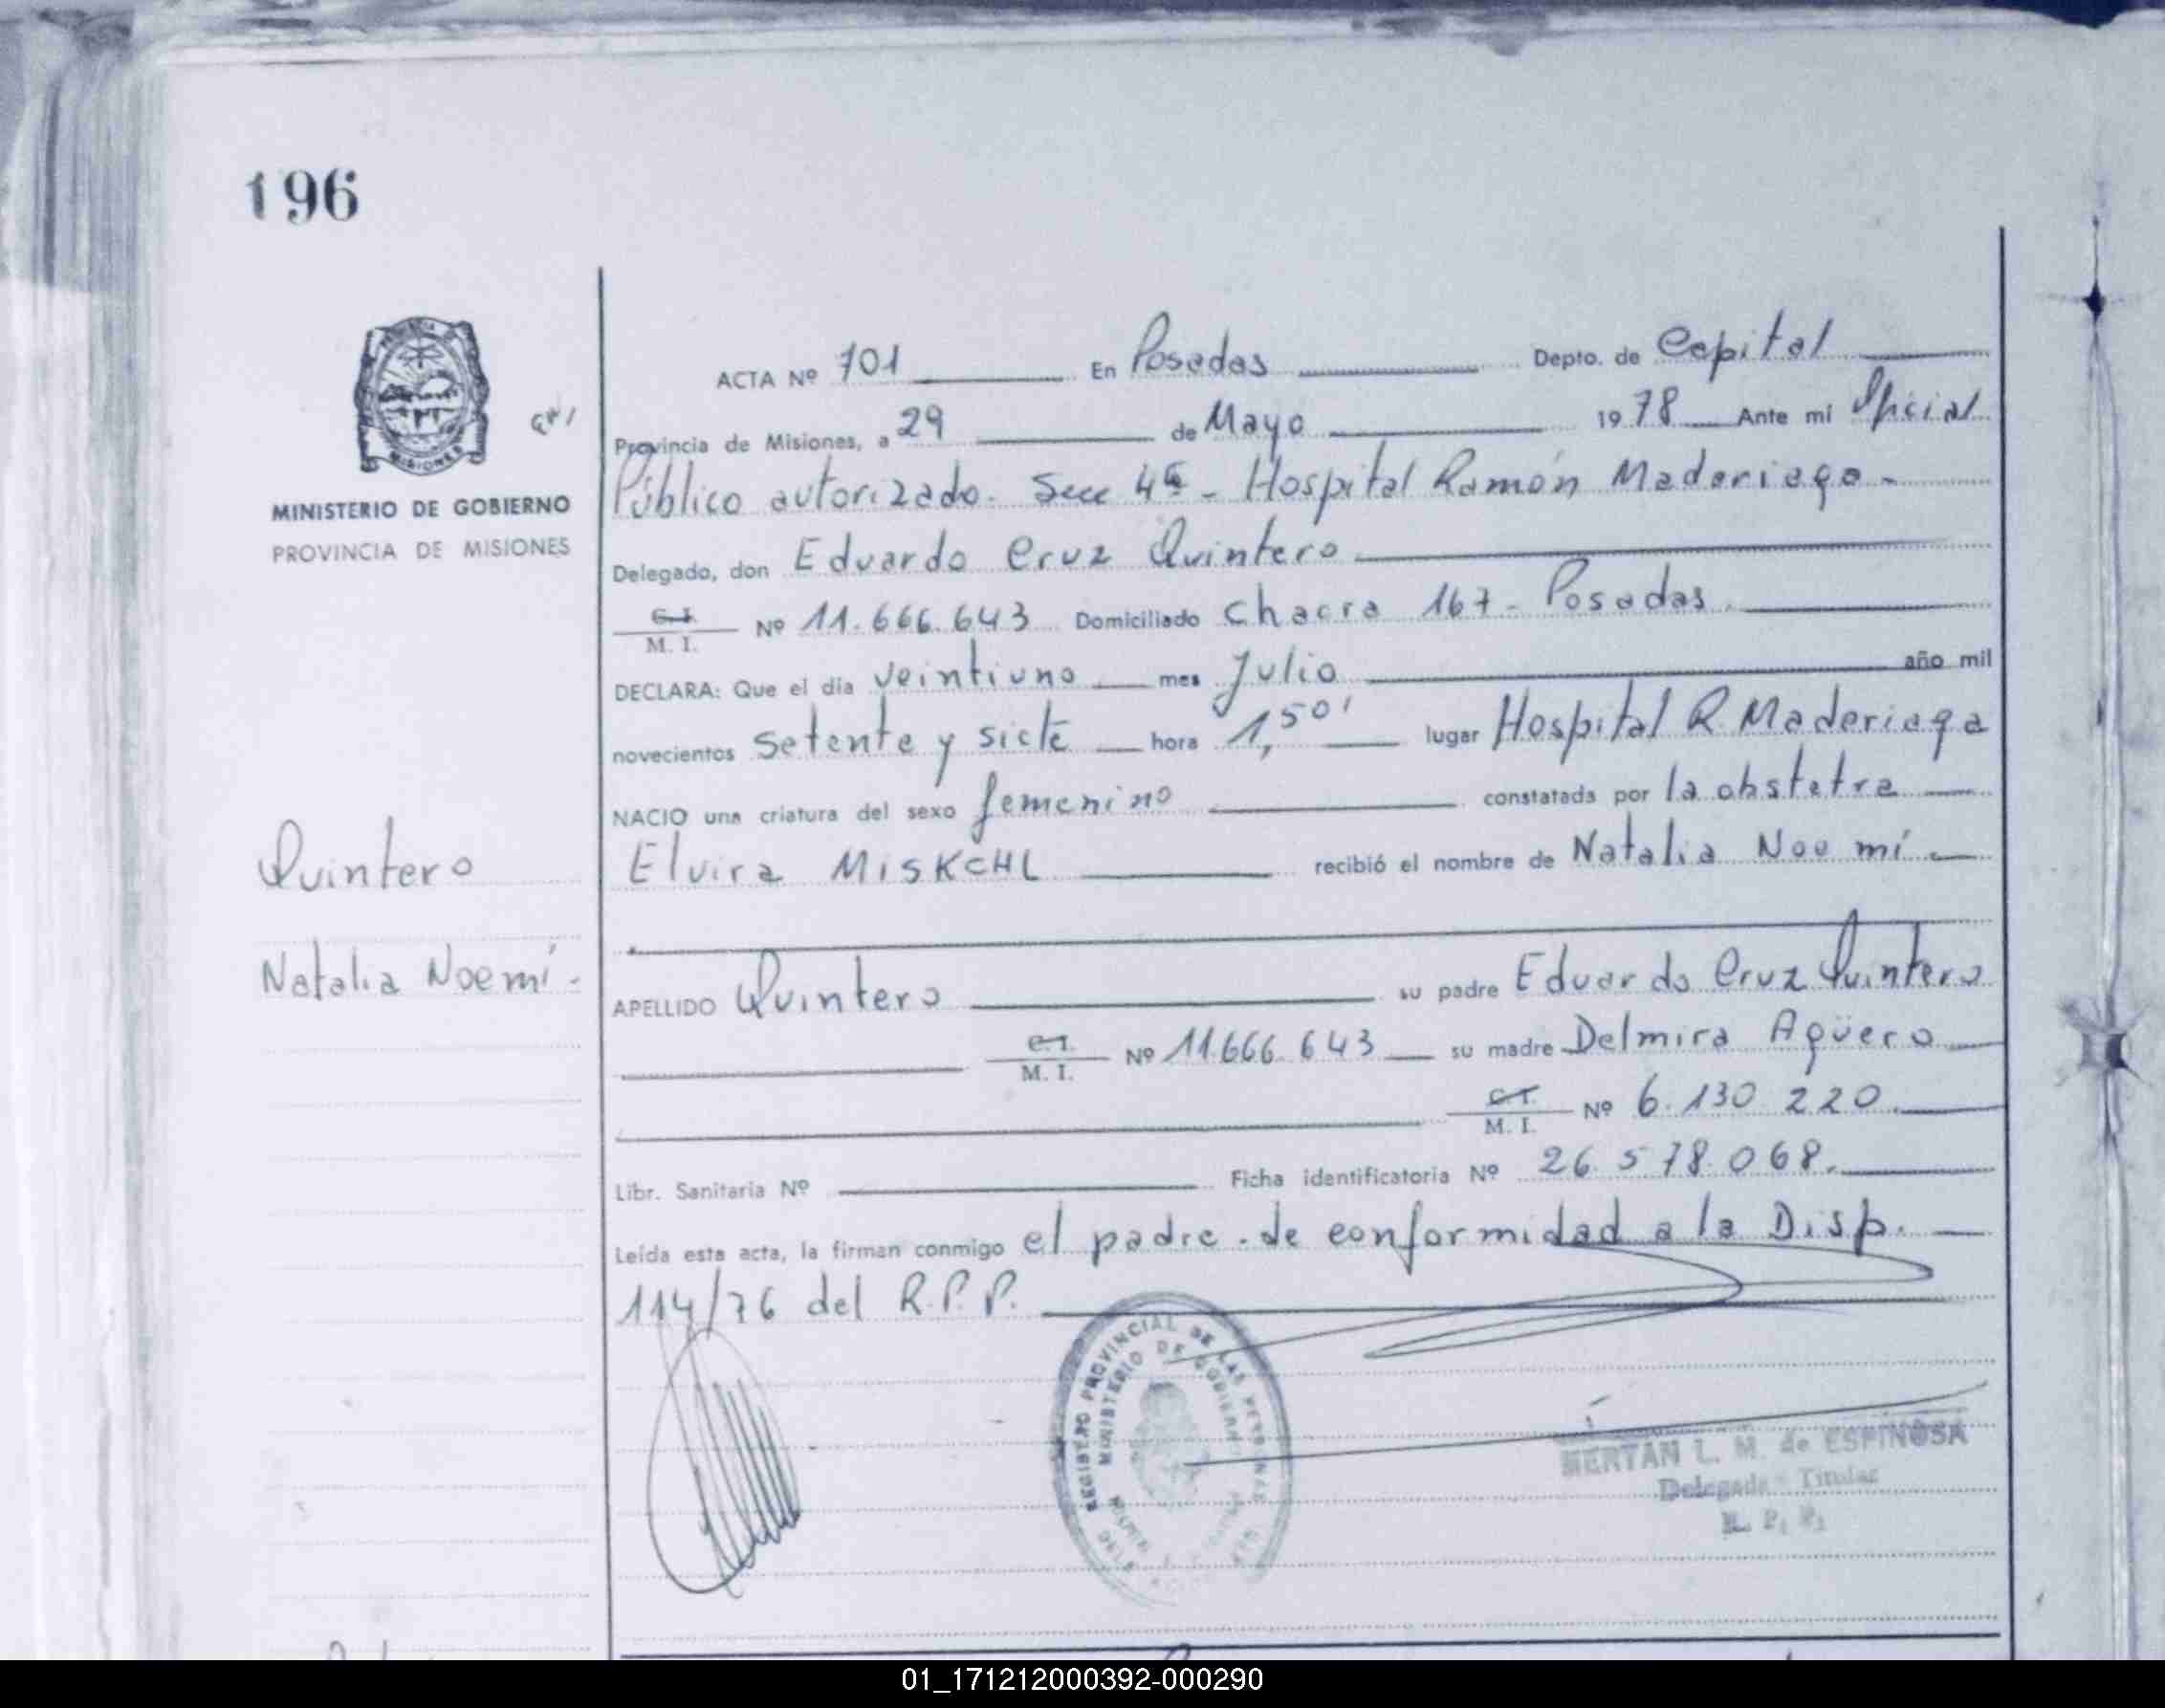 196
ACTA Nº 701 En Posadas Depto. de Capital
Provincia de Misiones, a 29 de Mayo 1978 Ante mi Oficial
Público autorizado. Secc 4ª - Hospital Ramón Madariaga -
MINISTERIO DE GOBIERNO
PROVINCIA DE MISIONES
Delegado, don Eduardo Cruz Quintero
C.I.
M. I. Nº 11.666.643 Domiciliado Chacra 167 - Posadas.
DECLARA: Que el día veintiuno mes Julio año mil
novecientos setenta y siete hora 1,50' lugar Hospital R. Madariaga
NACIO una criatura del sexo femenino constatada por la obstetra
Elvira MISKCHL recibió el nombre de Natalia Noemí -
Quintero
Natalia Noemí -
APELLIDO Quintero su padre Eduardo Cruz Quintero
C.I.
M. I. Nº 11.666.643 su madre Delmira Agüero
C.I.
M. I. Nº 6.130.220.
Libr. Sanitaria Nº Ficha identificatoria Nº 26.578.068.
Leída esta acta, la firman conmigo el padre. de conformidad a la Disp.
114/76 del R.P.P.
REGISTRO PROVINCIAL DE LAS PERSONAS
MINISTERIO DE GOBIERNO
L. M. de ESPINOSA
Delegada Titular
R. P. P.
01_171212000392-000290